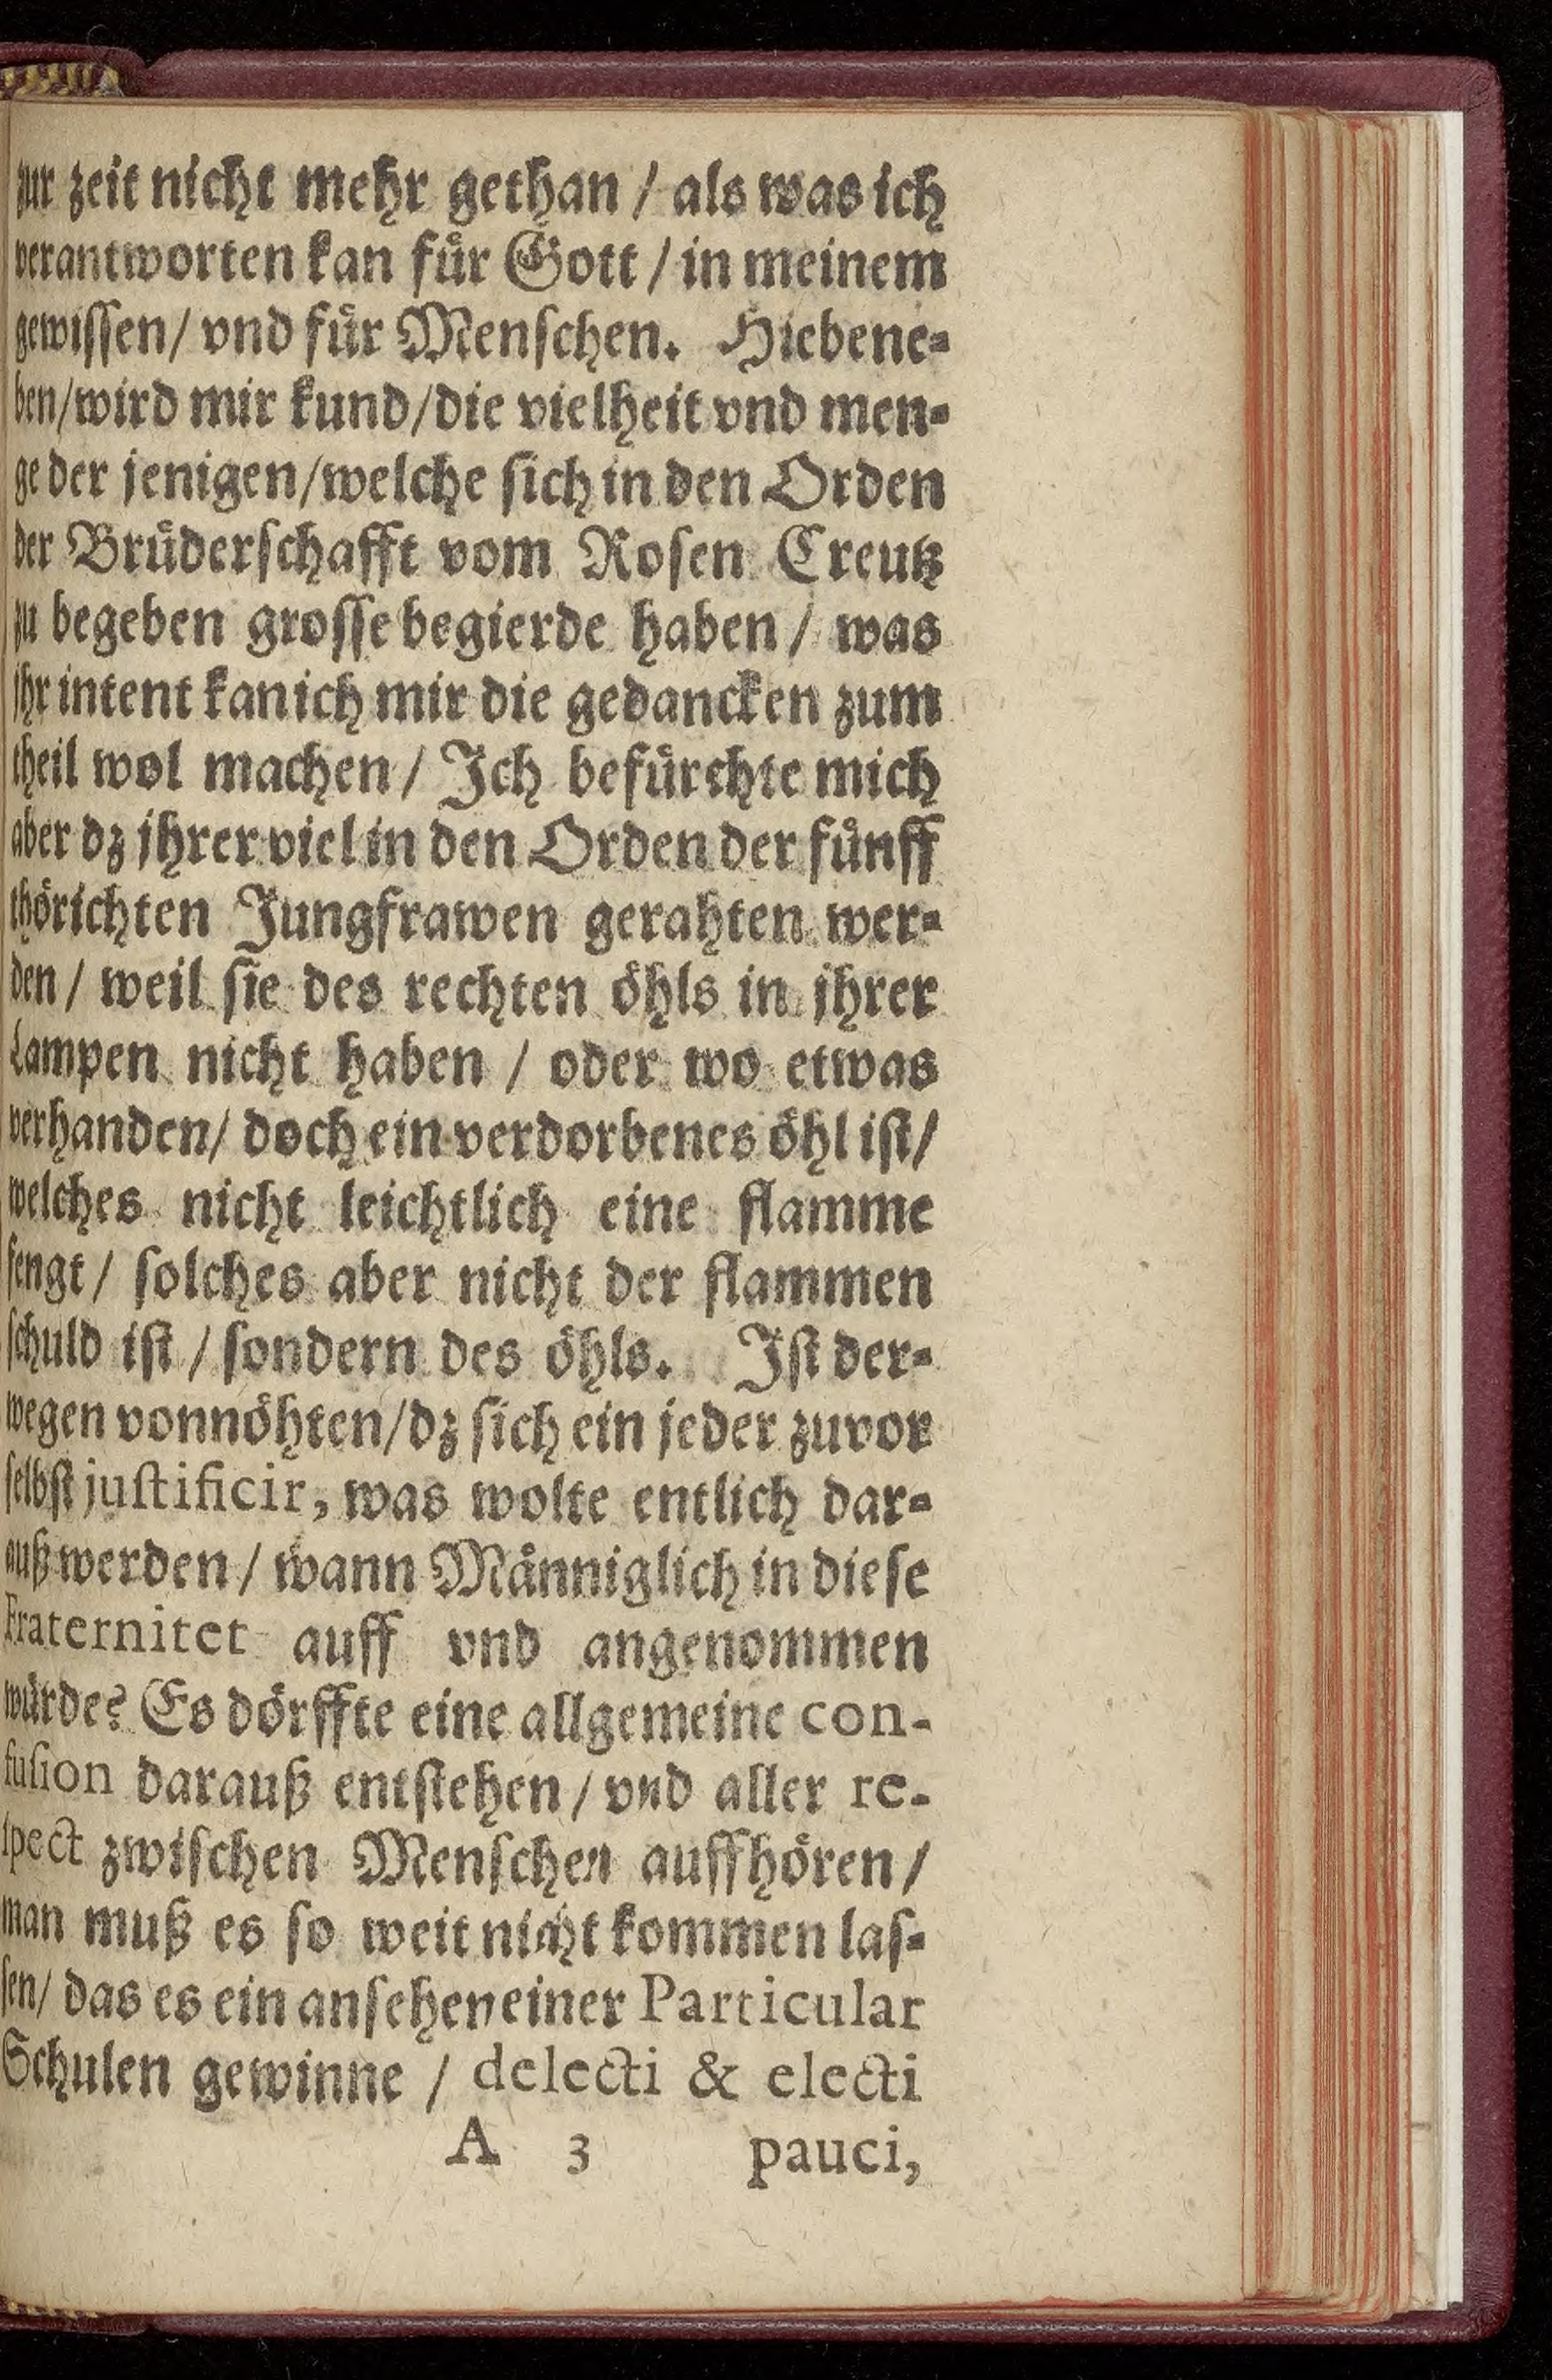 zur zeit nicht mehr gethan / als was ich
verantworten kan fuͤr Gott / in meinem
gewiſſen / vnd fuͤr Menſchen. Hiebene⸗
ben / wird mir kund / die vielheit vnd men⸗
ge der jenigen / welche ſich in den Orden
der Bruͤderſchafft vom Roſen Creutz
zu begeben groſſe begierde haben / was
jhr intent kan ich mir die gedancken zum
theil wol machen / Ich befuͤrchte mich
aber dz jhrer viel in den Orden der fuͤnff
thoͤrichten Jungfrawen gerahten wer⸗
den / weil ſie des rechten oͤhls in jhrer
Lampen nicht haben / oder wo etwas
verhanden / doch ein verdorbenes oͤhl iſt /
welches nicht leichtlich eine flamme
fengt / ſolches aber nicht der flammen
ſchuld iſt / ſondern des oͤhls. Iſt der⸗
wegen vonnoͤhten / dz ſich ein jeder zuvor
ſelbſt juſtificir, was wolte entlich dar⸗
auß werden / wann Maͤnniglich in dieſe
Fraternitet auff vnd angenommen
wuͤrde? Es doͤrffte eine allgemeine con-
fuſion darauß entſtehen / vnd aller re-
ſpect zwiſchen Menſchen auffhoͤren /
man muß es ſo weit nicht kommen laſ⸗
ſen / das es ein anſehen einer Particular
Schulen gewinne / delecti & electi
A 3 pauci,